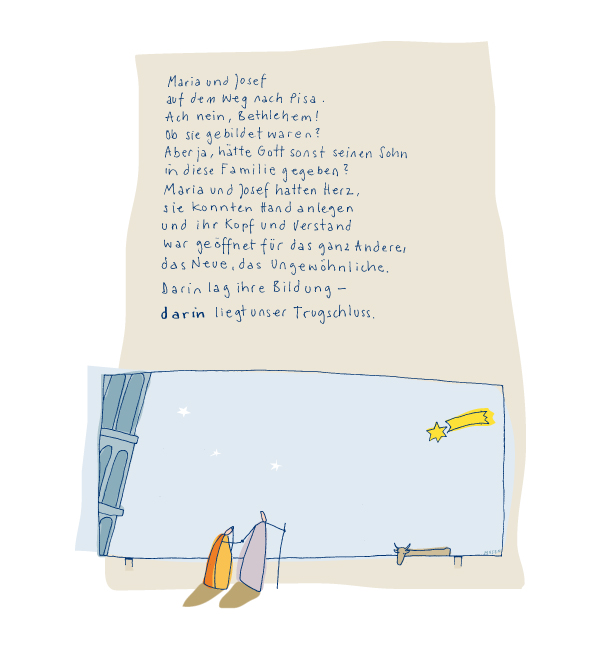 Maria und Josef
auf dem Weg nach Pisa.
Ach nein, Bethlehem!
Ob sie gebildet waren?
Aber ja, hätte Gott sonst seinen Sohn
in diese Familie gegeben?
Maria und Josef hatten Herz,
sie konnten Hand anlegen
und ihr Kopf und Verstand
war geöffnet für das ganz Andere,
das Neue, das Ungewöhnliche.
Darin lag ihre Bildung –
darin liegt unser Trugschluss.